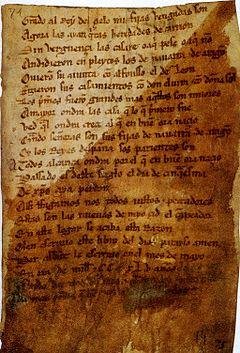 Grado al rey del çielo mis fijas vengadas son
Agora las ayan quitas heredades de carrion
Sin verguença las casare o aq̄ pese o aq̄ nō
Andidieron en pleytos los de nauarra ⁊ de aragō
Ouieron su aiunta cō alfonsso el de leō
Fizieron sus casamientos cō don eluira ⁊ cō doña sol
Los pͥmos fuerō grandes mas aq̄stos son miiores
A mayor ondra las casa que lo q̄ pͥmo fue
Ved q̄l ondra creçe al q̄ en buē ora naçio
Quādo señoras son sus fijas de nauarra ⁊ de aragō
Oy los Reyes despaña sos parientes son
A Todos alcança ondra por el q̄ en buē ora naçio
Passado es deste sieglo el dia de çinq̄esma
De xp̄s aya perdon
Assi ffagamos nos todos iustos ⁊ pecadores
Estas son las nueuas de myo çid el cāpeador
En este logar se acaba esta Razon
Quien escriuio este libro del dios parayso amen
Per abbat le escriuio en el mes de mayo
En era de mill ⁊ .C.C. xL.v. años